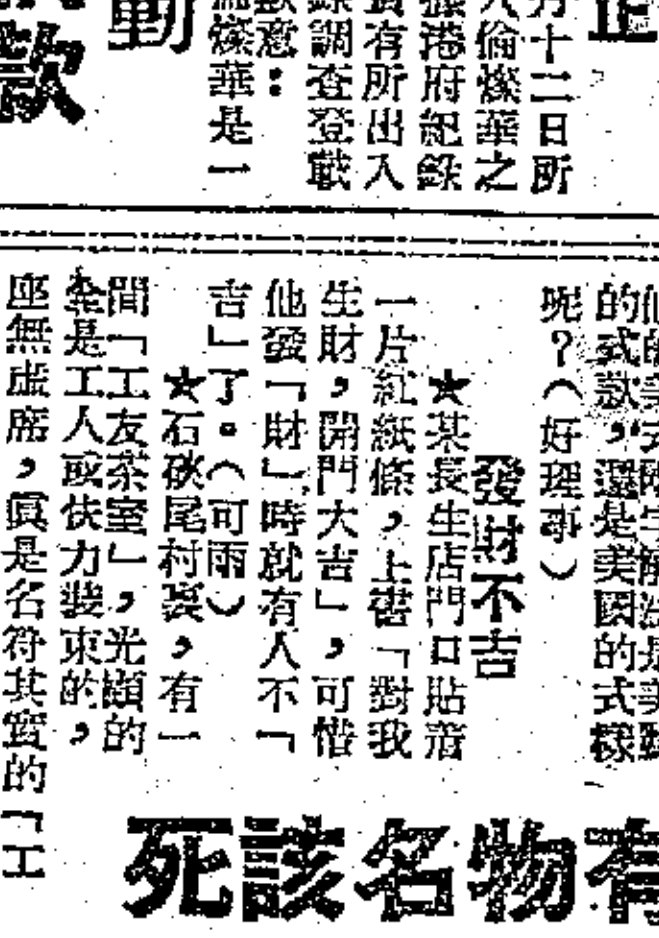 正
月十二日所
人倫燦華之
據港府紀錄
責有所出入
錄調查登載
歉意：
燦華是一
動
款
的式款，還是美國的式樣
呢？（好理事）
發財不吉
★某長生店門口貼着
一片紅紙條，上書「對我
生財，開門大吉」，可惜
他發「財」時就有人不「
吉」了。（可雨）
★石硤尾村裏，有一
間「工友茶室」，光顧的
全是工人或伕力裝束的，
座無虛席，眞是名符其實的「工
有物名該死